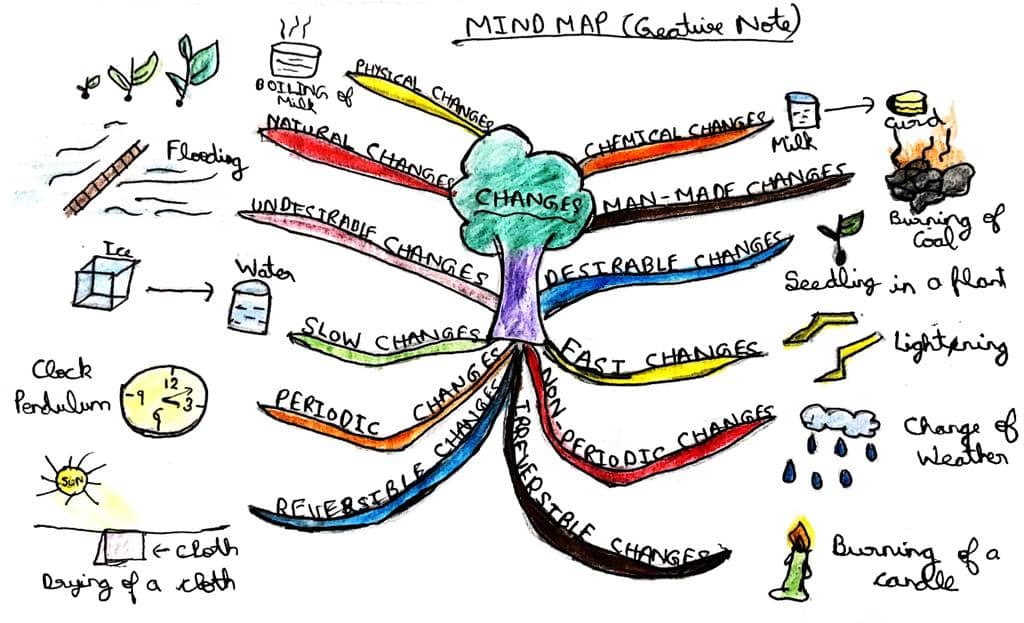 MIND MAP (Creative Note)
BOILING of
Milk
PHYSICAL CHANGES
NATURAL CHANGES
Flooding
UNDESIRABLE CHANGES
Ice
Water
SLOW CHANGES
Clock
Pendulum
12
9
3
6
PERIODIC CHANGES
SUN
REVERSIBLE CHANGES
← cloth
Drying of a cloth
CHANGES
CHEMICAL CHANGES
Milk
Curd
MAN-MADE CHANGES
Burning of
Coal
DESIRABLE CHANGES
Seedling in a plant
FAST CHANGES
Lightening
NON-PERIODIC CHANGES
Change of
Weather
IRREVERSIBLE CHANGES
Burning of a
candle